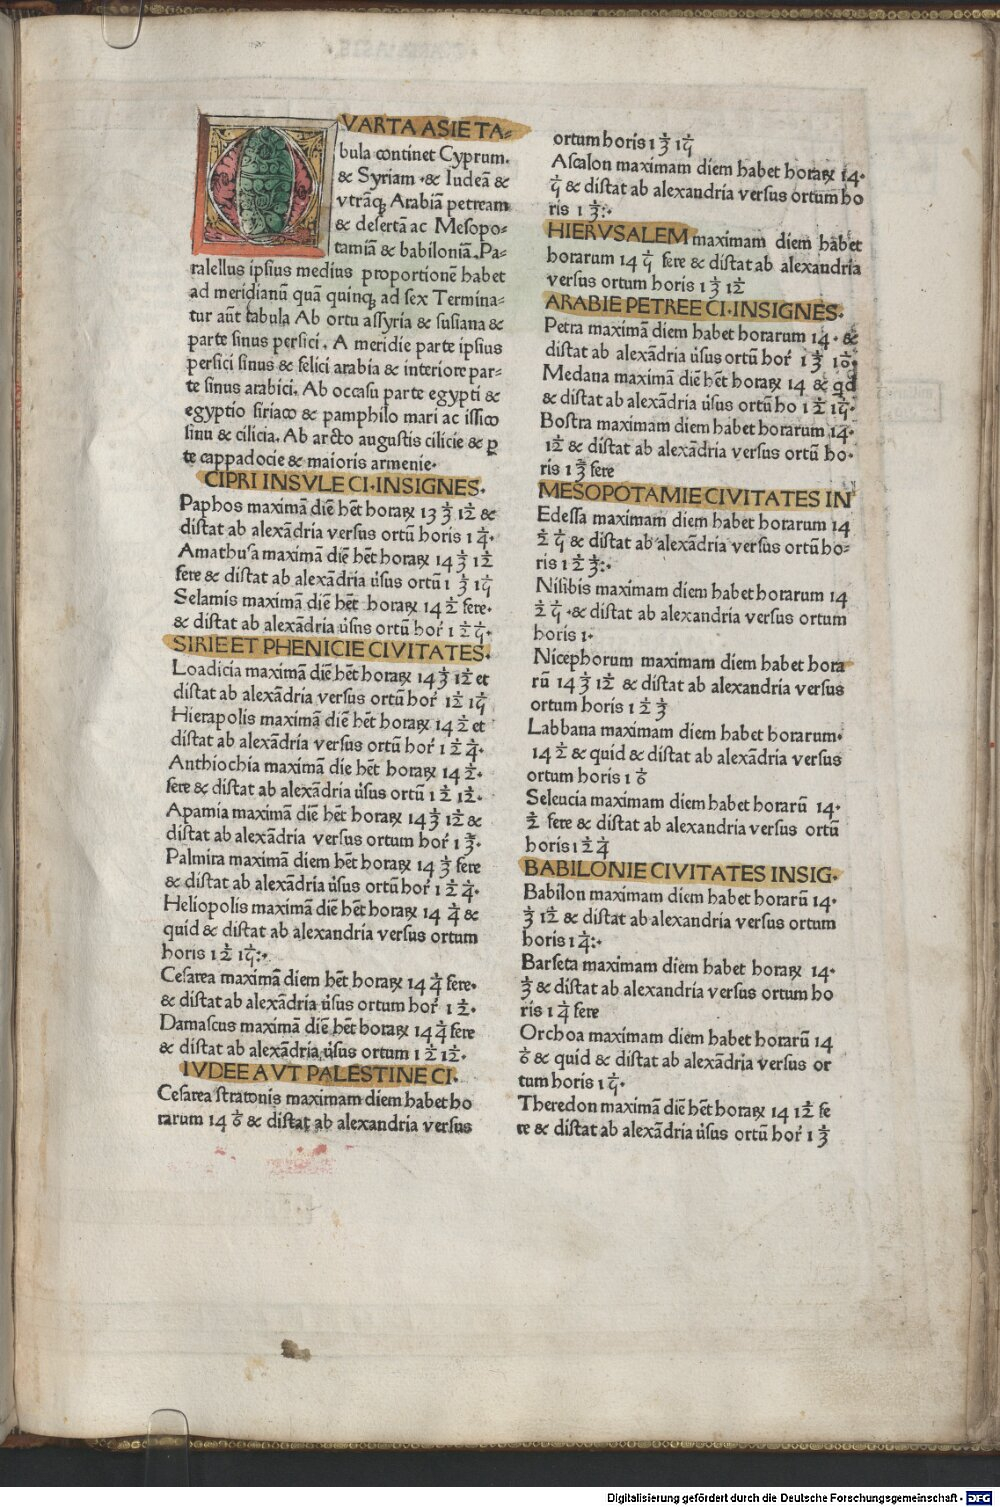 QVARTA ASIE TA-
bula continet Cyprum.
& Syriam & Iudeã &
vtrãq; Arabiã petream
& desertã ac Mesopo-
tamiã & babiloniã. Pa-
ralellus ipsius medius proportionẽ habet
ad meridianũ quã quinq; ad sex Termina-
tur aũt tabula Ab ortu assyria & susiana &
parte sinus persici. A meridie parte ipsius
persici sinus & felici arabia & interiore par-
te sinus arabici. Ab occasu parte egypti &
egyptio siriaco & pamphilo mari ac issico
sinu & cilicia. Ab arcto augustis cilicie & ꝑ
te cappadocie & maioris armenie.
CIPRI INSVLE CI.INSIGNES.
Paphos maximã diẽ hẽt horaꝝ 13 1/3 1/12 &
distat ab alexãdria versus ortũ horis 1 1/4.
Amathusa maximã diẽ hẽt horaꝝ 14 1/3 1/12
fere & distat ab alexãdria u̇sus ortũ 1 1/3 1/15
Selamis maximã diẽ hẽt horaꝝ 14 1/2 fere.
& distat ab alexãdria u̇sus ortũ hoṙ 1 1/2 1/5.
SIRIE ET PHENICIE CIVITATES.
Loadicia maximã diẽ hẽt horaꝝ 14 1/3 1/12 et
distat ab alexãdria versus ortũ hoṙ 1/12 1/15
Hierapolis maximã diẽ hẽt horaꝝ 14 1/2 et
distat ab alexãdria versus ortũ hoṙ 1 1/2 1/4.
Anthiochia maximã die hẽt horaꝝ 14 1/2.
fere & distat ab alexãdria u̇sus ortũ 1 1/2 1/12.
Apamia maximã diẽ hẽt horaꝝ 14 1/3 1/12 &
distat ab alexãdria versus ortum hoṙ 1 2/3.
Palmira maximã diem hẽt horaꝝ 14 1/3 fere
& distat ab alexãdria u̇sus ortũ hoṙ 1 1/2 1/4.
Heliopolis maximã diẽ hẽt horaꝝ 14 1/4 &
quid & distat ab alexandria versus ortum
horis 1 1/2 1/15:.
Cesarea maximã diem hẽt horaꝝ 14 1/4 fere.
& distat ab alexãdria u̇sus ortum hoṙ 1 1/2.
Damascus maximã diẽ hẽt horaꝝ 14 1/4 fere
& distat ab alexãdria u̇sus ortum 1 1/2 1/12.
IVDEE AVT PALESTINE CI.
Cesarea stratonis maximam diem habet ho
rarum 14 1/6 & distat ab alexandria versus
ortum horis 1 1/3 1/15
Ascalon maximam diem habet horaꝝ 14.
1/5 & distat ab alexandria versus ortum ho
ris 1 1/3:.
HIERVSALEM maximam diem habet
horarum 14 1/5 fere & distat ab alexandria
versus ortum horis 1 1/3 1/12
ARABIE PETREE CI.INSIGNES.
Petra maximã diem habet horarum 14. &
distat ab alexãdria u̇sus ortũ hoṙ 1 1/3 1/10.
Medana maximã diẽ hẽt horaꝝ 14 & qd
& distat ab alexãdria u̇sus ortũ ho 1 1/2 1/15.
Bostra maximam diem habet horarum 14.
1/12 & distat ab alexãdria versus ortũ ho-
ris 1 2/3 fere
MESOPOTAMIE CIVITATES IN
Edessa maximam diem habet horarum 14
1/2 1/5 & distat ab alexãdria versus ortũ ho-
ris 1 1/2 1/3:.
Nisibis maximam diem habet horarum 14
1/2 1/5 .& distat ab alexandria versus ortum
horis 1.
Nicephorum maximam diem habet hora
rũ 14 1/3 1/12 & distat ab alexandria versus
ortum horis 1 1/2 1/3
Labbana maximam diem habet horarum.
14 1/2 & quid & distat ab alexãdria versus
ortum horis 1 6
Seleucia maximam diem habet horarũ 14.
1/2 fere & distat ab alexãdria versus ortũ
horis 1 1/2 1/4
BABILONIE CIVITATES INSIG.
Babilon maximam diem habet horarũ 14.
1/3 1/12 & distat ab alexãdria versus ortum
horis 1 1/4:.
Barseta maximam diem habet horaꝝ 14.
1/3 & distat ab alexãdria versus ortum ho
ris 1 1/4 fere
Orchoa maximam diem habet horarũ 14
1/6 & quid & distat ab alexãdria versus or
tum horis 1 1/5.
Theredon maximã diẽ hẽt horaꝝ 14 1/12 fe
re & distat ab alexãdria u̇sus ortũ hoṙ 1 1/3
Digitalisierung gefördert durch die Deutsche Forschungsgemeinschaft - DFG